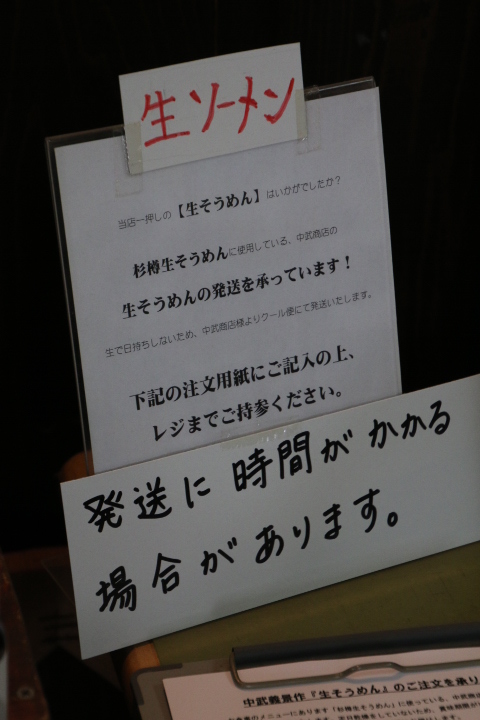 生ソーメン
当店一押しの【生そうめん】はいかがでしたか？
杉樽生そうめんに使用している、中武商店の
生そうめんの発送を承っています！
生で日持ちしないため、中武商店様よりクール便にて発送いたします。
下記の注文用紙にご記入の上、
レジまでご持参ください。
発送に時間がかかる
場合があります。
中武義景作『生そうめん』のご注文を承り
メニューにあります「杉樽生そうめん」に使っている、中武商